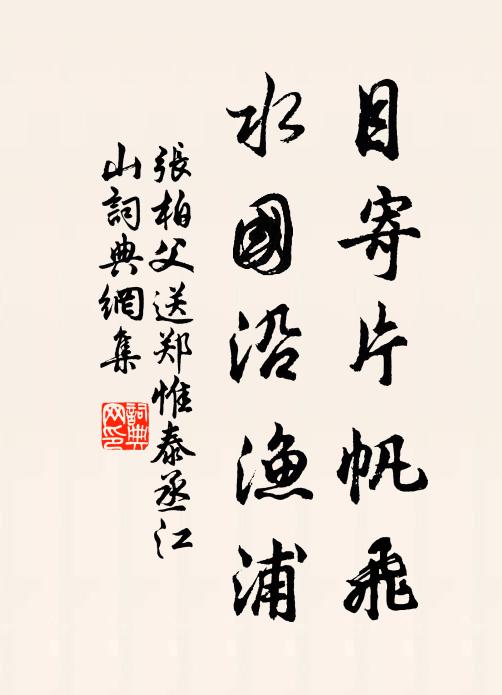 目寄片帆飛
水國沿漁浦
張柏父送郑惟泰丞江
山詞典網集
詞典
网印